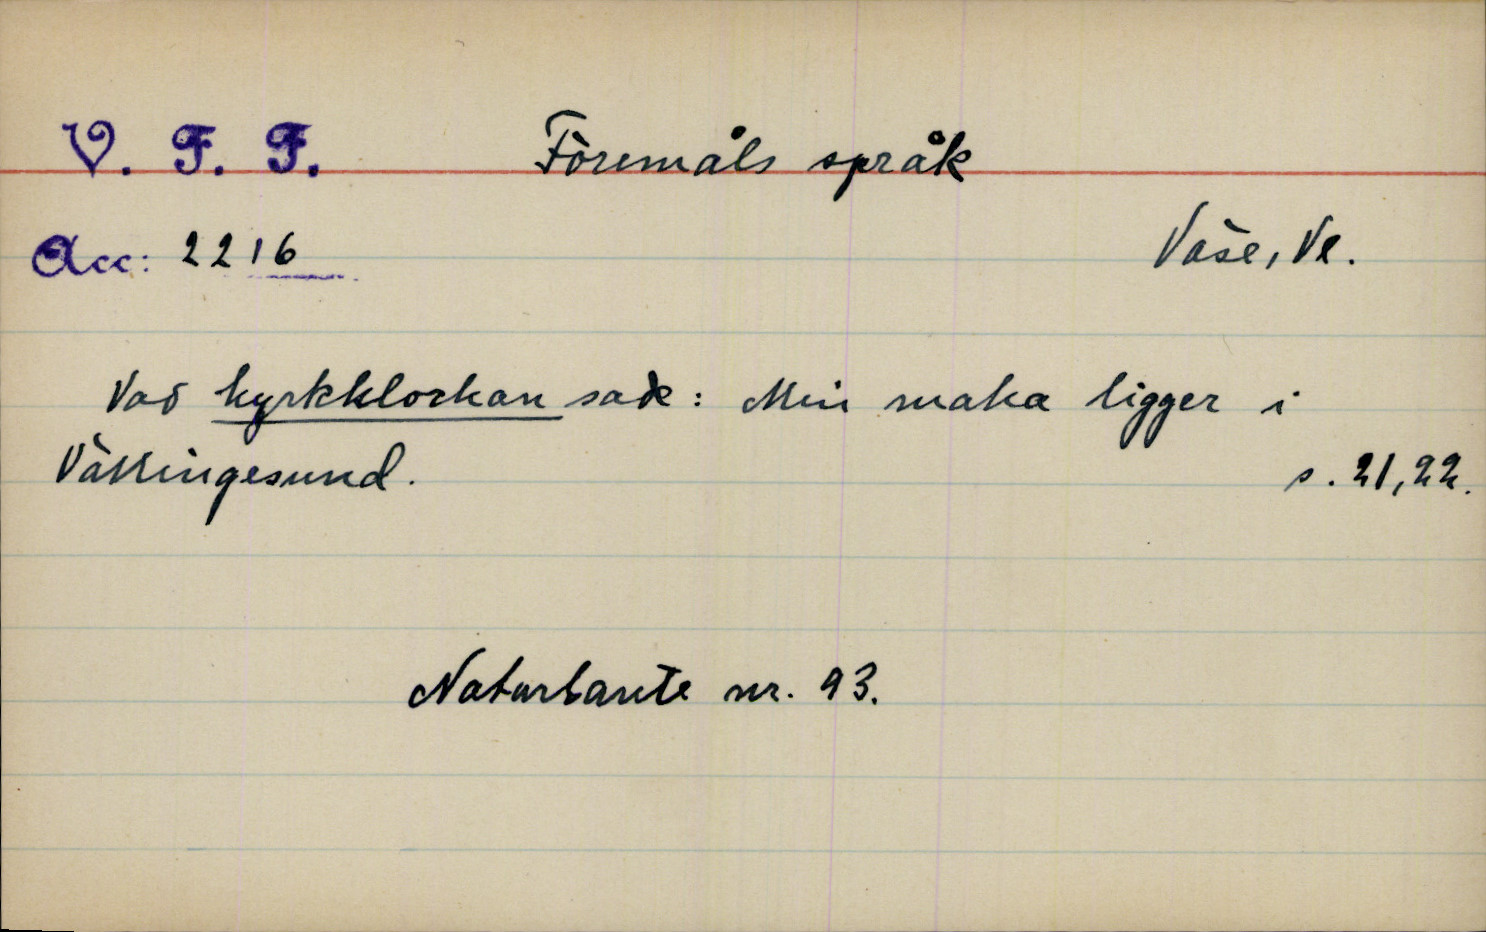 V. F. F. Föremåls språk
Acc: 2216 Väse, Ve.
Vad kyrkklockan sade: Min maka ligger i
Vättingesund. s. 21, 22.
Naturlante nr. 93.